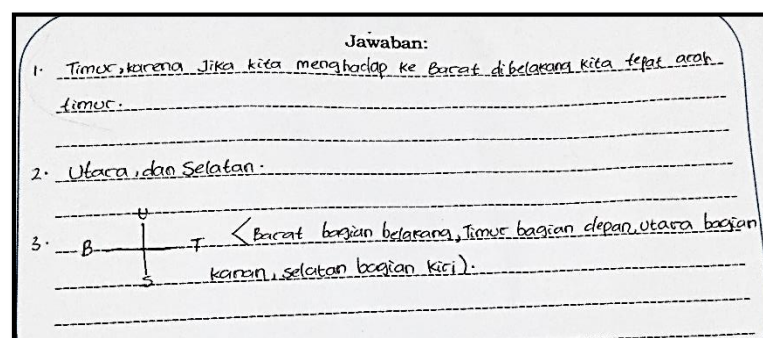 Jawaban:
1. Timur, karena Jika kita menghadap ke Barat dibelakang kita tepat arah
timur.
2. Utara, dan Selatan.
U
3. B T (Barat bagian belakang, Timur bagian depan, utara bagian
S kanan, selatan bagian kiri).